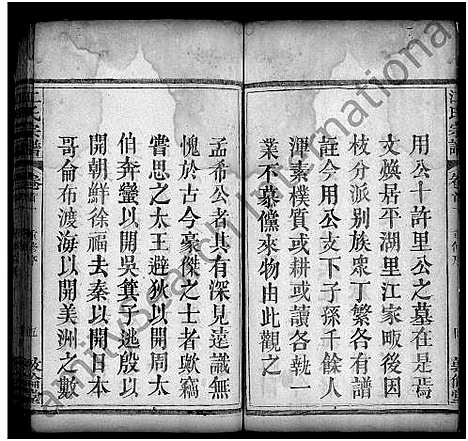 用公十許里公之墓在是焉
文煥居平湖里江家畈後因
枝分派別族衆丁繁各有譜
誌今用公支下子孫千餘人
渾素樸質或耕或讀各執一
業不慕儻來物由此觀之
孟希公者其有深見遠識無
愧於古今豪傑之士者歟竊
嘗思之太王避狄以開周太
伯奔蠻以開吳箕子逃殷以
開朝鮮徐福去秦以開日本
哥倫布渡海以開美洲之數
江氏宗譜
卷首
江氏宗譜
卷首
敦倫堂